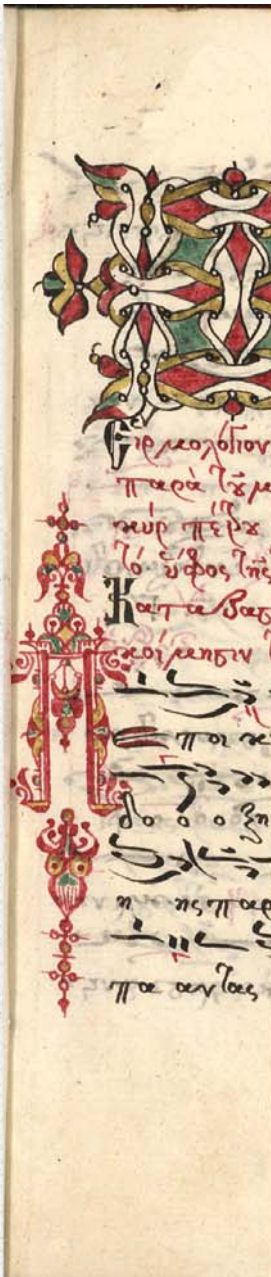 Εἱρμολόγιον
παρὰ τοῦ μ
κὺρ Πέτρου
τὸ ὕφος τῆς
Καταβασ
κοίμησιν
Π
ε ποι κι
δο ο ο ξη
η ης παρ
πα αντας